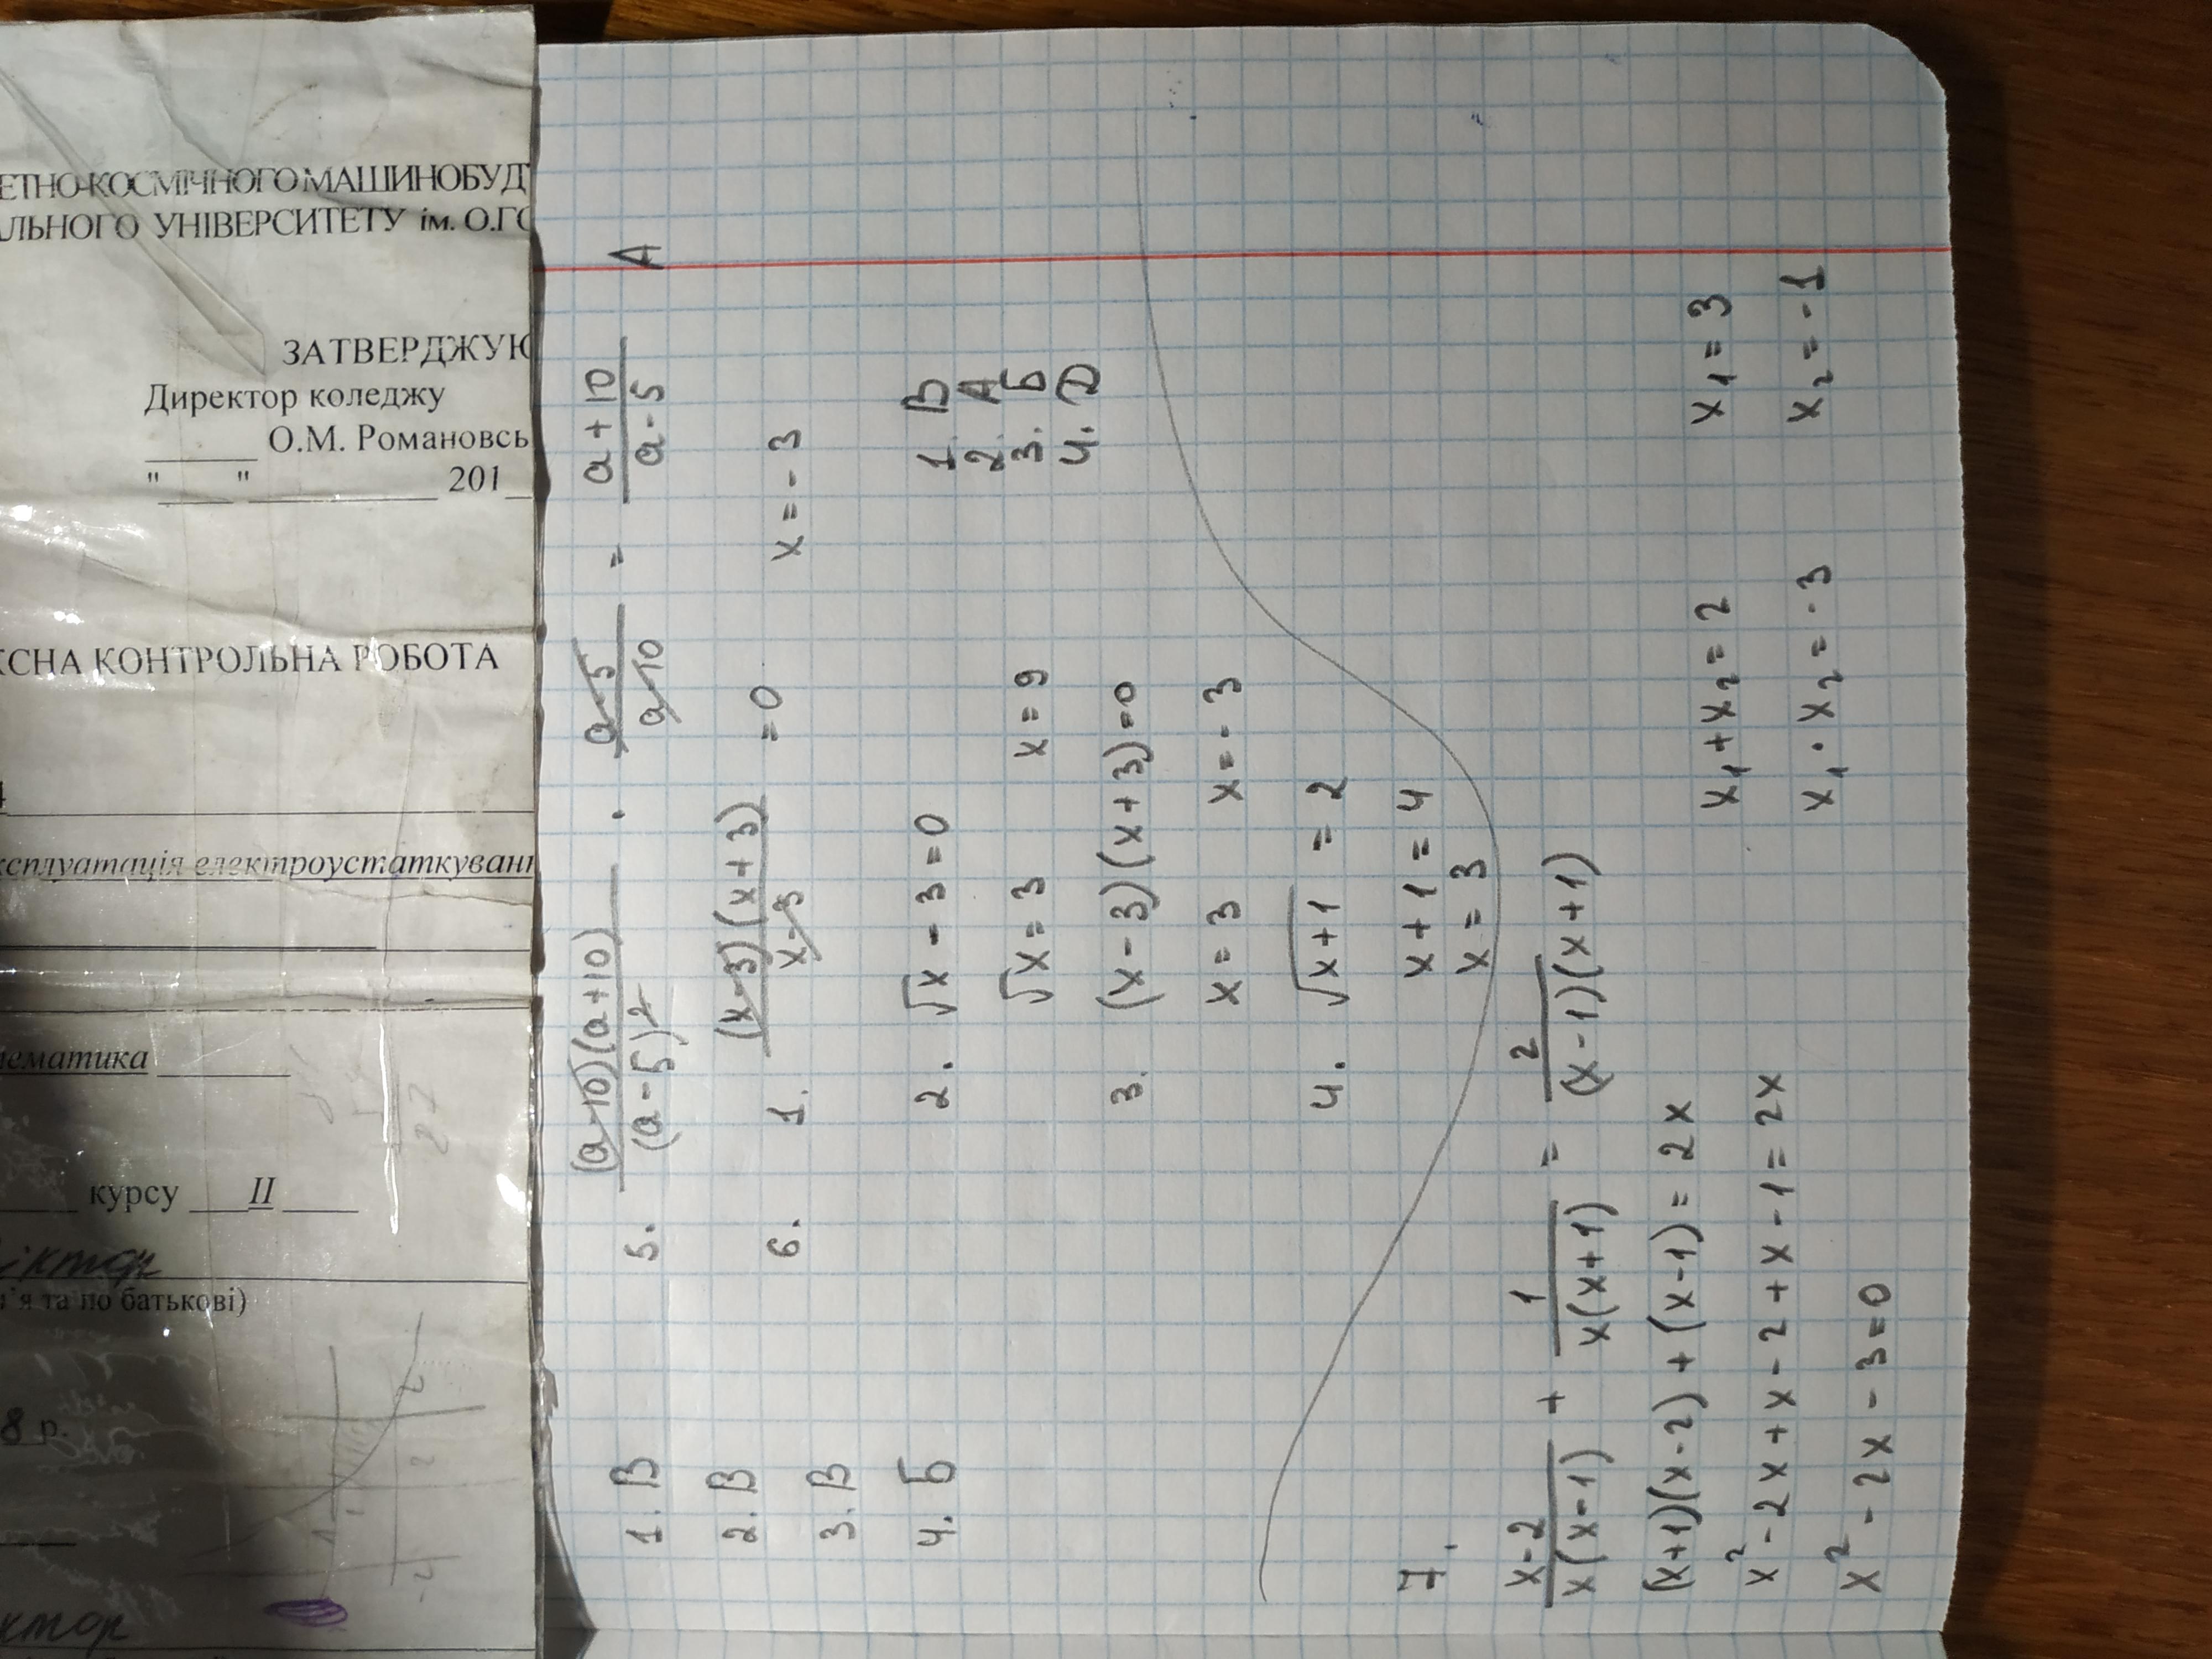 ЕТНО-КОСМІЧНОГО МАШИНОБУД
АЛЬНОГО УНІВЕРСИТЕТУ ім. О.ГО
ЗАТВЕРДЖУЮ
Директор коледжу
О.М. Романовсь
"____" ____________ 201__
КСНА КОНТРОЛЬНА РОБОТА
ксплуатація електроустаткуванн
тематика
курсу II
іктор
'я та по батькові)
8 р.
ктор
1. В
2. В
3. В
4. Б
5. (a-10)(a+10)/(a-5)² · (a-5)/(a-10) = (a+10)/(a-5) А
6. 1. (x-3)(x+3)/(x-3) = 0 x = -3
2. √x - 3 = 0
√x = 3 x = 9
3. (x-3)(x+3)=0
x = 3 x = -3
4. √(x+1) = 2
x+1=4
x = 3
1. В
2. А
3. Б
4. D
7.
(x-2)/(x(x-1)) + 1/(x(x+1)) = 2/((x-1)(x+1))
(x+1)(x-2)+(x-1) = 2x
x² - 2x + x - 2 + x - 1 = 2x
x² - 2x - 3 = 0
x₁ + x₂ = 2 x₁ = 3
x₁ · x₂ = -3 x₂ = -1